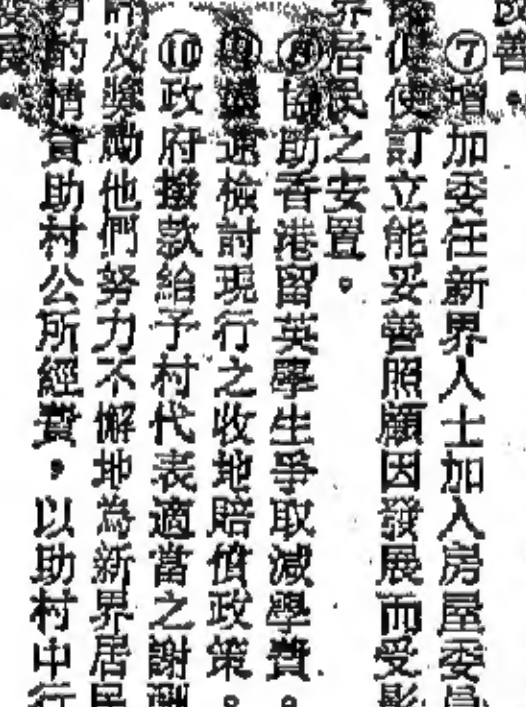 改善。
⑦增加委任新界人士加入房屋委員
促使訂立能妥善照顧因發展而受影
界居民之安置。
⑧協助香港留英學生爭取減學費。
⑨儘速檢討現行之收地賠償政策。
⑩政府撥款給予村代表適當之謝酬
人獎勵他們努力不懈地為新界居民
的情資助村公所經費，以助村中行